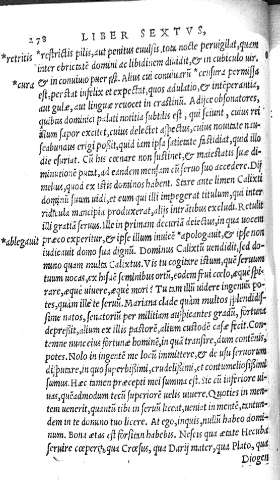 278 LIBER SEXTVS,
*retritis *restrictis pilis, aut penitus euulsis, tota nocte peruigilat, quam
inter ebrietatẽ domini ac libidinem diuidit, & in cubiculo uir,
*cura & in conuiuio puer est. Alius cui conuiuarũ *censura permissa
est, perstat infelix et expectat, quos adulatio, & intẽperantia,
aut gulæ, aut linguæ reuocet in crastinũ. Adijce obsonatores,
quibus dominici palati notitia subtilis est, qui sciunt, cuius rei
illum sapor excitet, cuius delectet aspectus, cuius nouitate nau
seabundus erigi possit, quid iam ipsa satietate fastidiat, quid illo
die esuriat. Cũ his cœnare non sustinet, & maiestatis suæ di-
minutionẽ putat, ad eandem mensam cũ seruo suo accedere. Dij
melius, quod ex istis dominos habent. Stare ante limen Calixti
dominũ suum uidi, et eum qui illi impegerat titulum, qui inter
ridicula mancipia produxerat, alijs intrãtibus excludi. Retulit
illi gratiã seruus. Ille in primam decuriã deiectus, in qua uocem
*ablegauit præco experitur, & ipse illum inuicẽ *apologauit, & ipse non
iudicauit domo sua dignũ. Dominus Calixtũ uendidit, sed do-
mino quam multa Calixtus. Vis tu cogitare istum, quẽ seruum
tuum uocas, ex hisdẽ seminibus ortũ, eodem frui cœlo, æque spi-
rare, æque uiuere, æque mori? Tu tam illũ uidere ingenuũ po-
tes, quàm ille te seruũ. Mariana clade quàm multos splendidis-
sime natos, senatoriũ per militiam auspicantes gradũ, fortuna
depressit, alium ex illis pastorẽ, alium custodẽ casæ fecit. Con-
temne nunc eius fortunæ hominẽ, in quã transire, dum contẽnis,
potes. Nolo in ingentẽ me locũ immittere, & de usu seruorum
disputare, in quos superbissimi, crudelißimi, et contumeliosissimi
sumus. Hæc tamen præcepti mei summa est. Sic cũ inferiore ui-
uas, quẽadmodum tecũ superiorẽ uelis uiuere. Quoties in men-
tem uenerit, quantũ tibi in seruũ liceat, ueniat in mentẽ, tantun-
dem in te domino tuo licere. At ego, inquis, nullũ habeo domi-
num. Bona ætas est forsitan habebis. Nescis qua ætate Hecuba
seruire cœperit, qua Crœsus, qua Darij mater, qua Plato, qua
Diogen